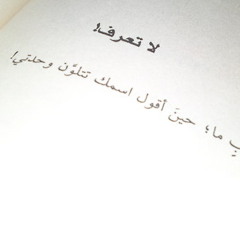 لا تعرف!
ما؛ حينَ أقول اسمك تتلوّن وحدتي!